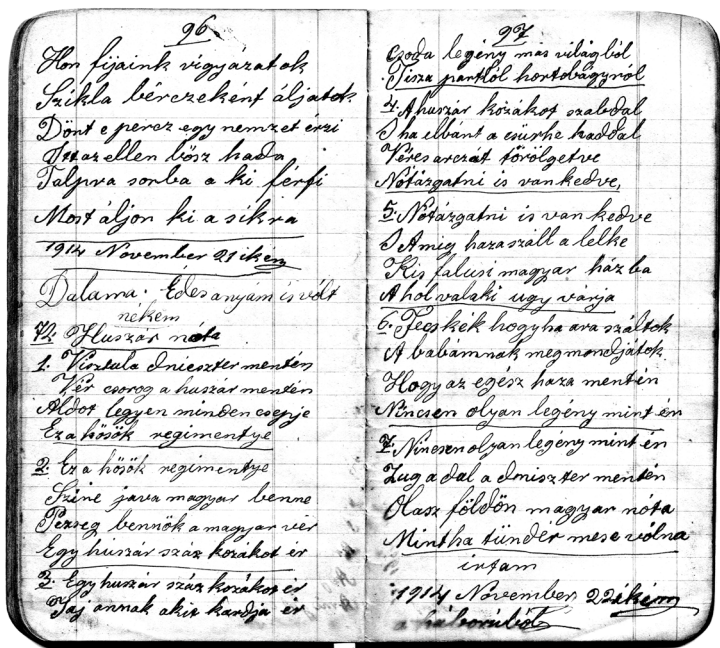 96
Hon fijaink vigyázatok
Szikla bérczeként áljatok
Dönt e percz egy nemzet érzi
Itt az ellen bősz hada
Talpra sorba a ki férfi
Most áljon ki a síkra
1914 November 21 ikén
Dalama. Édes anyám is vólt
nekem
72. Huszár nóta
1. Visztula dnieszter mentén
Vér csorog a huszár mentén
Áldot legyen minden csepje
Ez a hősök regimentye
2. Ez a hősök regimentye
Szine java magyar benne
Pezseg bennök a magyar vér
Egy huszár száz kozákot ér
3. Egy huszár száz kozákot ér
Jaj annak akit kardja ér
97
Csoda legény más világból
Tisza partból hortobágyról
4. A huszár kozákot szabdal
S ha elbánt a csürhe haddal
Véres arczát törölgetve
Nótázgatni is van kedve,
5. Nótázgatni is van kedve
S Amig haza száll a lelke
Kis falusi magyar házba
A hol valaki ugy várja
6. Fecskék hogyha ara száltok
A babámnak megmondjátok
Hogy az egész haza mentén
Nincsen olyan legény mint én
7. Nincsen olyan legény mint én
Zug a dal a dniszter mentén
Olasz földön magyar nóta
Mintha tündér mese vólna
irtam
1914 November 22 ikém
a háborúból